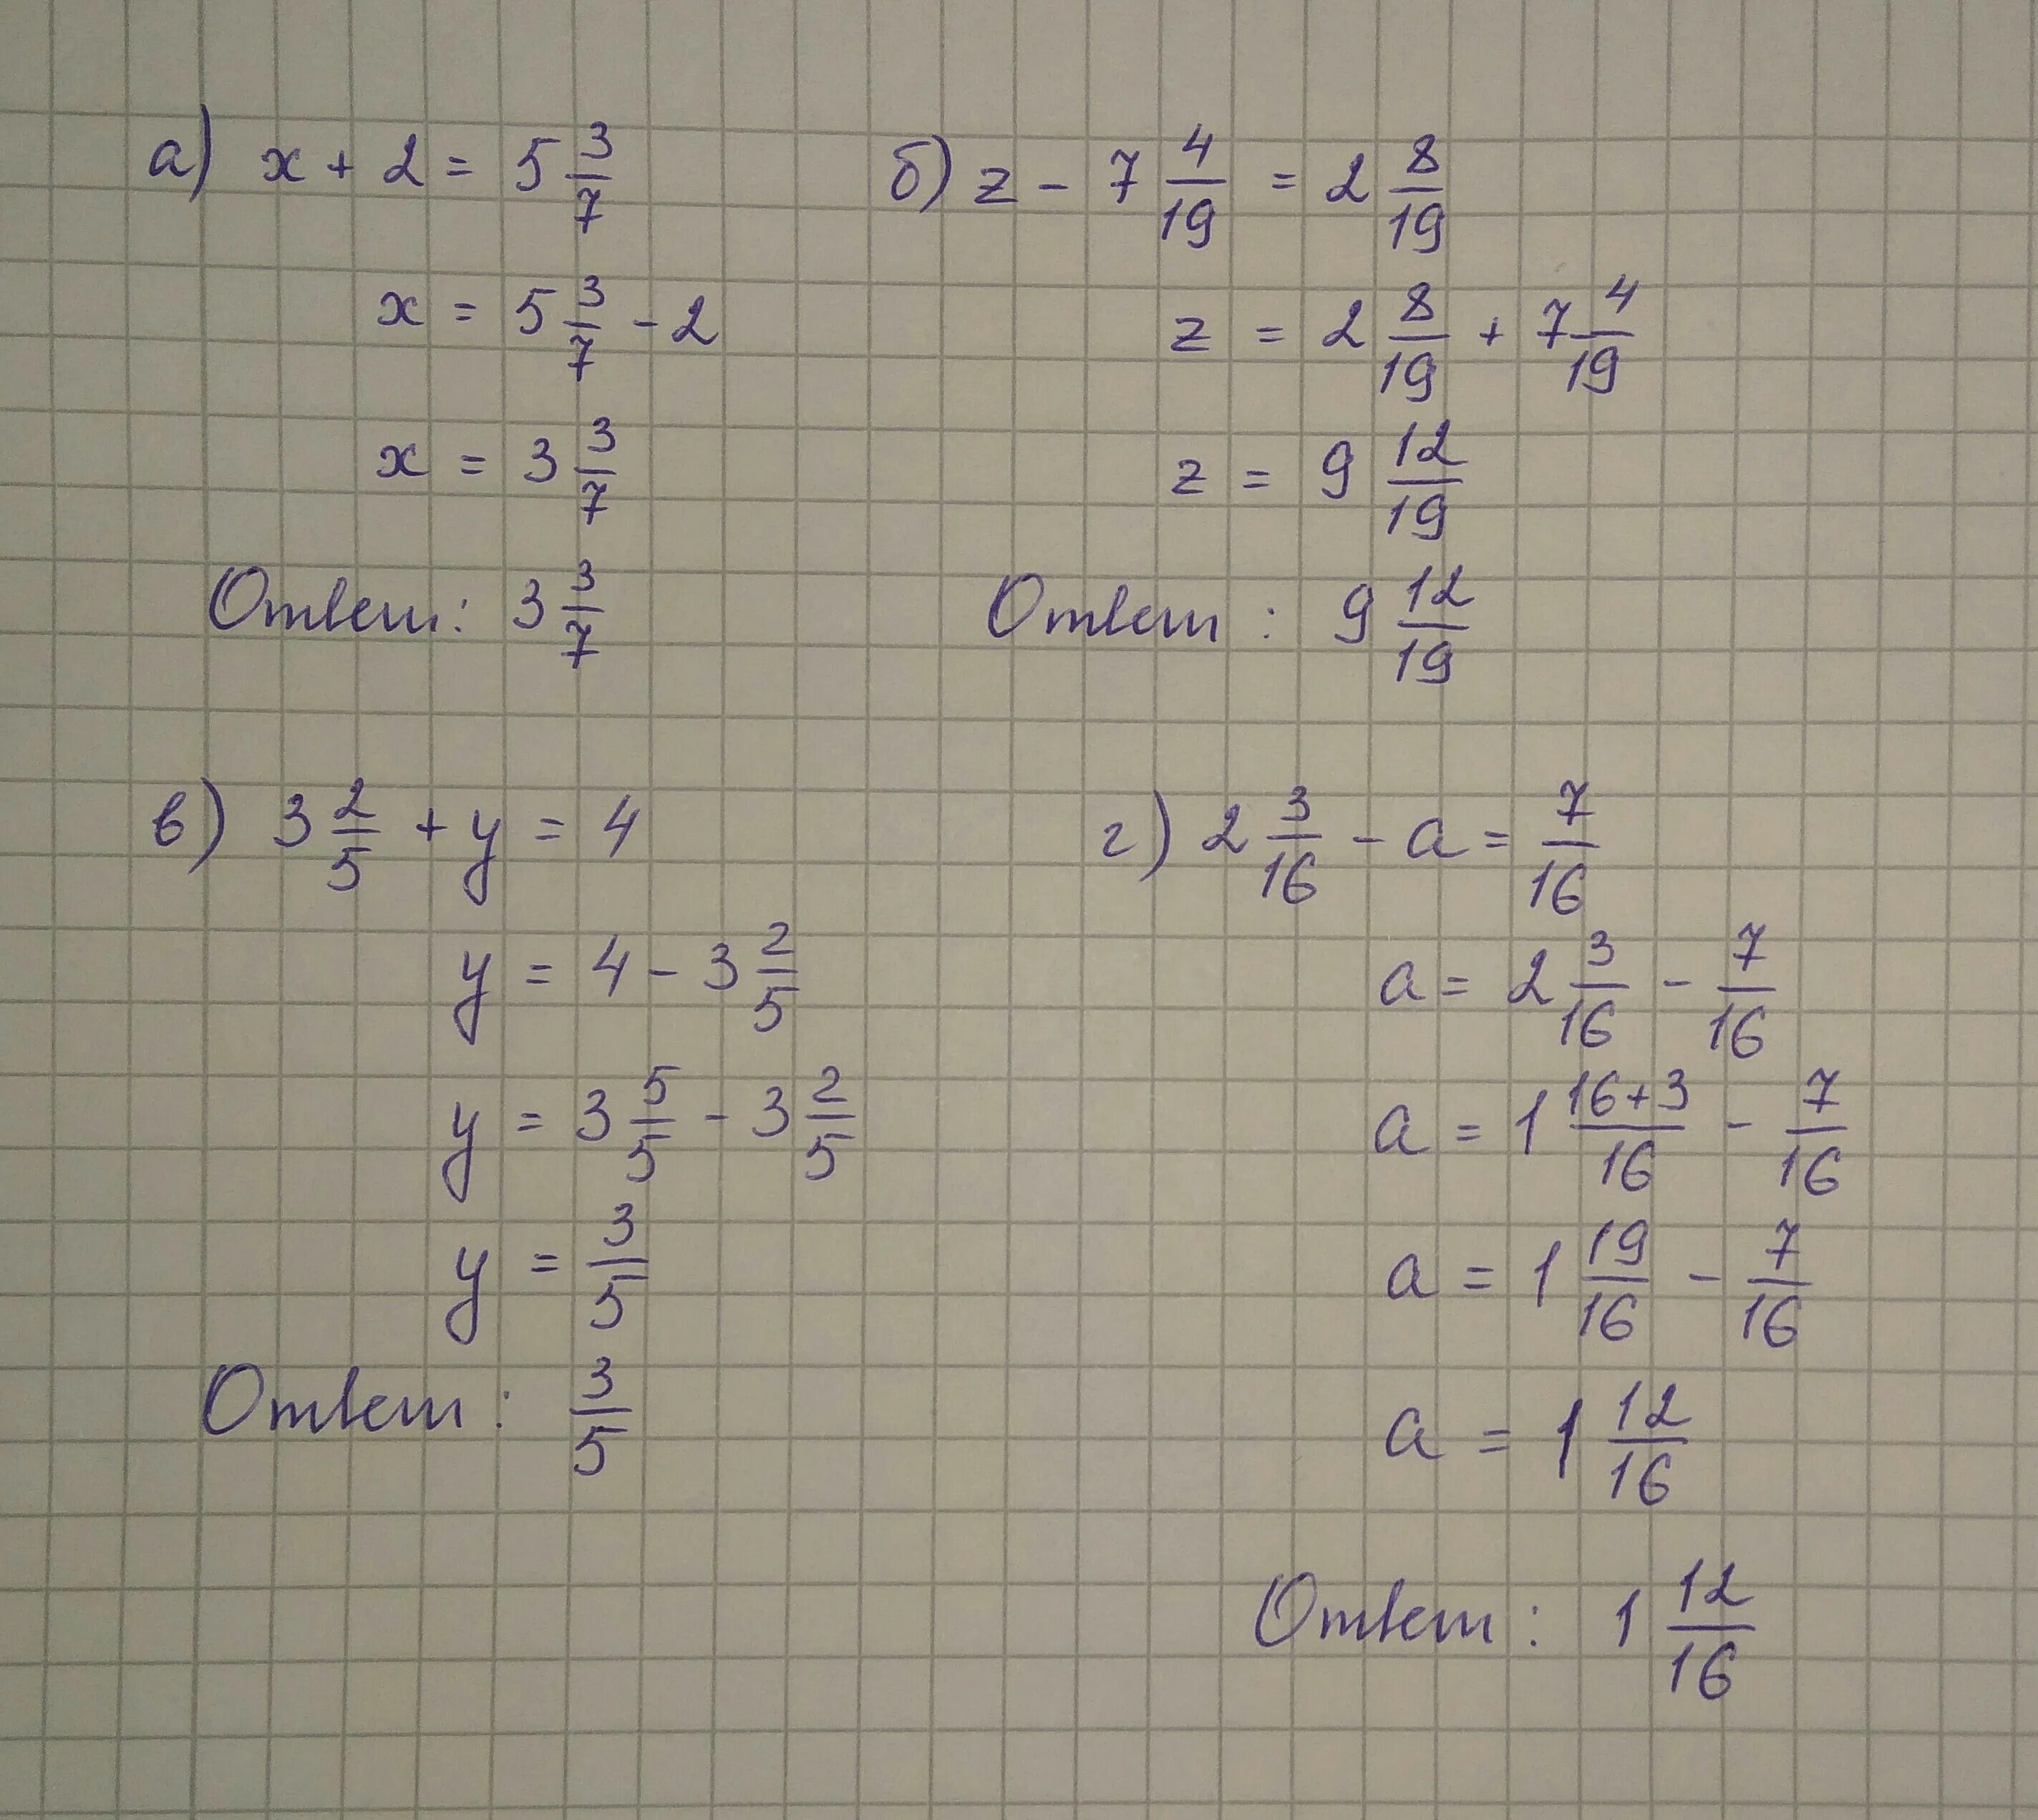 а) x + 2 = 5 3/7
x = 5 3/7 - 2
x = 3 3/7
Ответ: 3 3/7
б) z - 7 4/19 = 2 8/19
z = 2 8/19 + 7 4/19
z = 9 12/19
Ответ: 9 12/19
в) 3 2/5 + y = 4
y = 4 - 3 2/5
y = 3 5/5 - 3 2/5
y = 3/5
Ответ: 3/5
г) 2 3/16 - a = 7/16
a = 2 3/16 - 7/16
a = 1 (16+3)/16 - 7/16
a = 1 19/16 - 7/16
a = 1 12/16
Ответ: 1 12/16